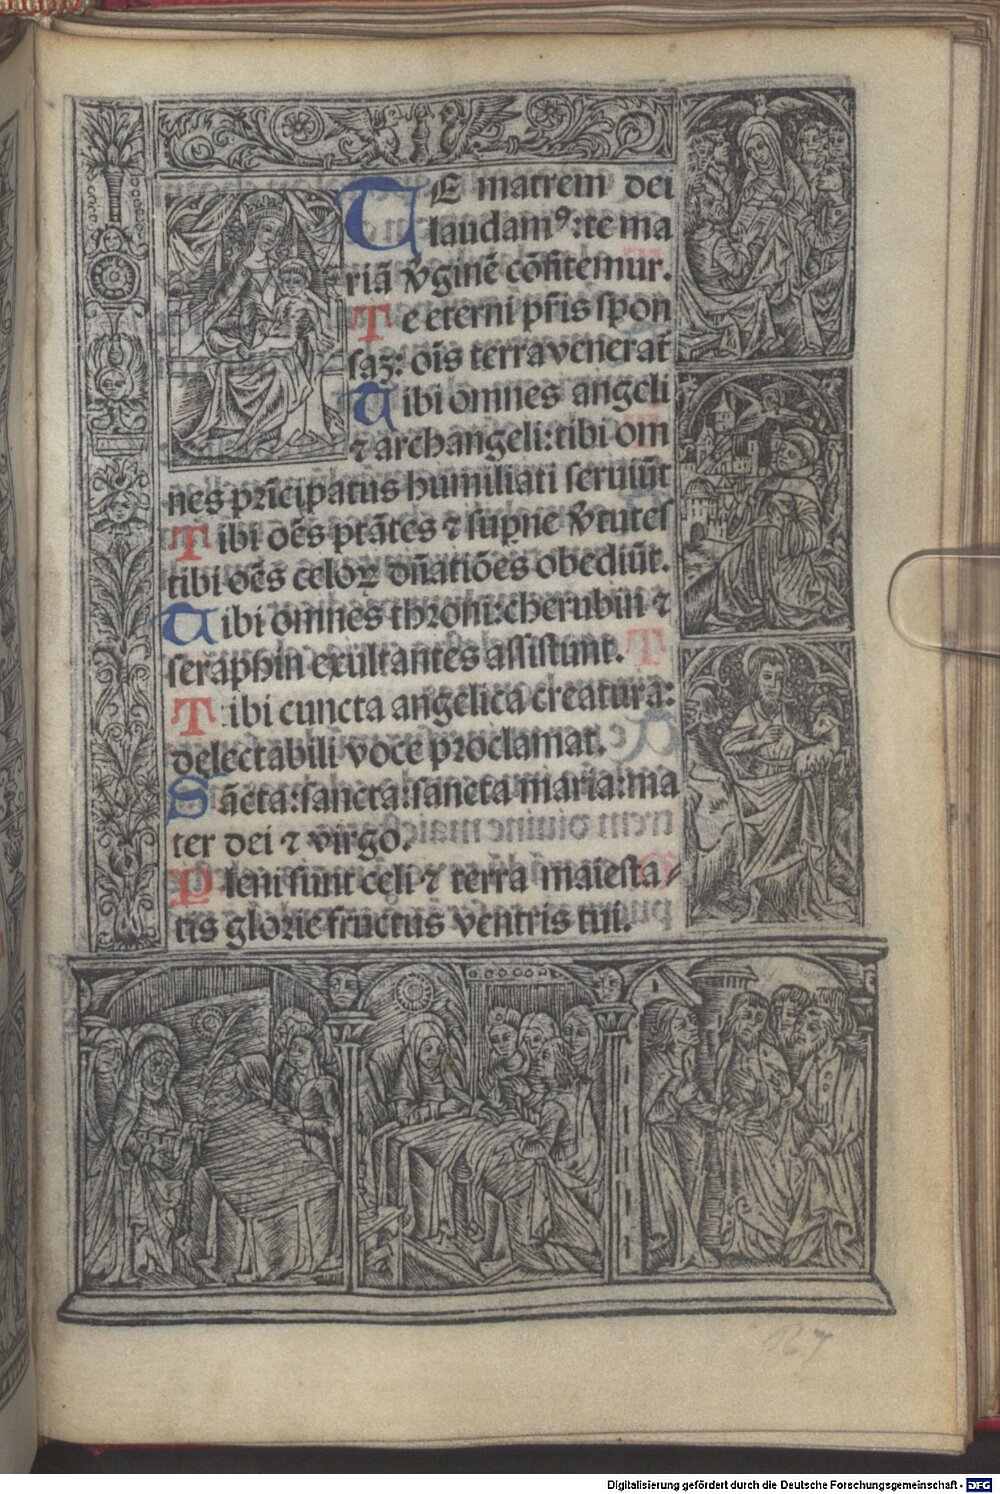 TE matrem dei
laudamꝰ: te ma
riã v̾ginẽ cõfitemur.
Te eterni pr̃is spon
saꝫ: oĩs terra venerat᷑
Tibi omnes angeli
⁊ archangeli: tibi om
nes prĩcipatus humiliati seruiũt
Tibi oẽs ptãtes ⁊ suꝑne v̾tutes
tibi oẽs celoꝝ dñatiões obediũt.
Tibi omnes throni: cherubin ⁊
seraphin exultantes assistunt.
Tibi cuncta angelica creatura:
delectabili voce proclamat.
Sãcta: sancta: sancta maria: ma
ter dei ⁊ virgo.
Pleni sunt celi ⁊ terra maiesta/
tis glorie fructus ventris tui.
Digitalisierung gefördert durch die Deutsche Forschungsgemeinschaft - DFG